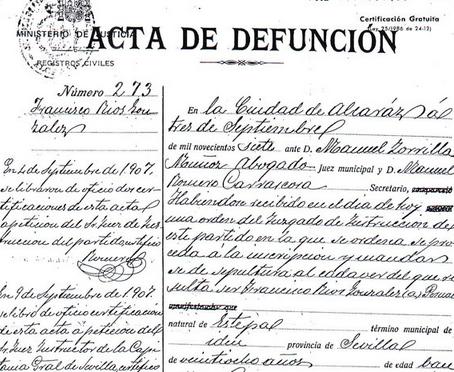 Certificación Gratuita
(Ley 25/1986 de 24-12)
MINISTERIO DE JUSTICIA
REGISTROS CIVILES
ACTA DE DEFUNCIÓN
Número 273
Francisco Rios Gon
zalez
En 4 de Septiembre de 1907.
se libraron de oficio dos cer
tificaciones de esta acta
a peticion del Sr. Juez de Ins
truccion del partido certifico
Romero
En 9 de Septiembre de 1907.
se libró de oficio certificacion
de esta acta á peticion del
Sr. Juez Instructor de la Capi
tania Gral de Sevilla, certifico
En la Ciudad de Alcaráz á
tres de Septiembre
de mil novecientos siete ante D. Manuel Zorrilla
Muñoz Abogado Juez municipal y D. Manuel
Romero Carrascosa Secretario,
Habiendose recibido en el dia de hoy
una orden del Juzgado de Instruccion de
este partido en la que se ordena se pro
ceda a la inscripcion y mandar
se de sepultura al cadaver del que re
sulta ser Francisco Rios Gonzalez (a) Pernales
natural de Estepa término municipal de
idem provincia de Sevilla
de veintiocho años de edad